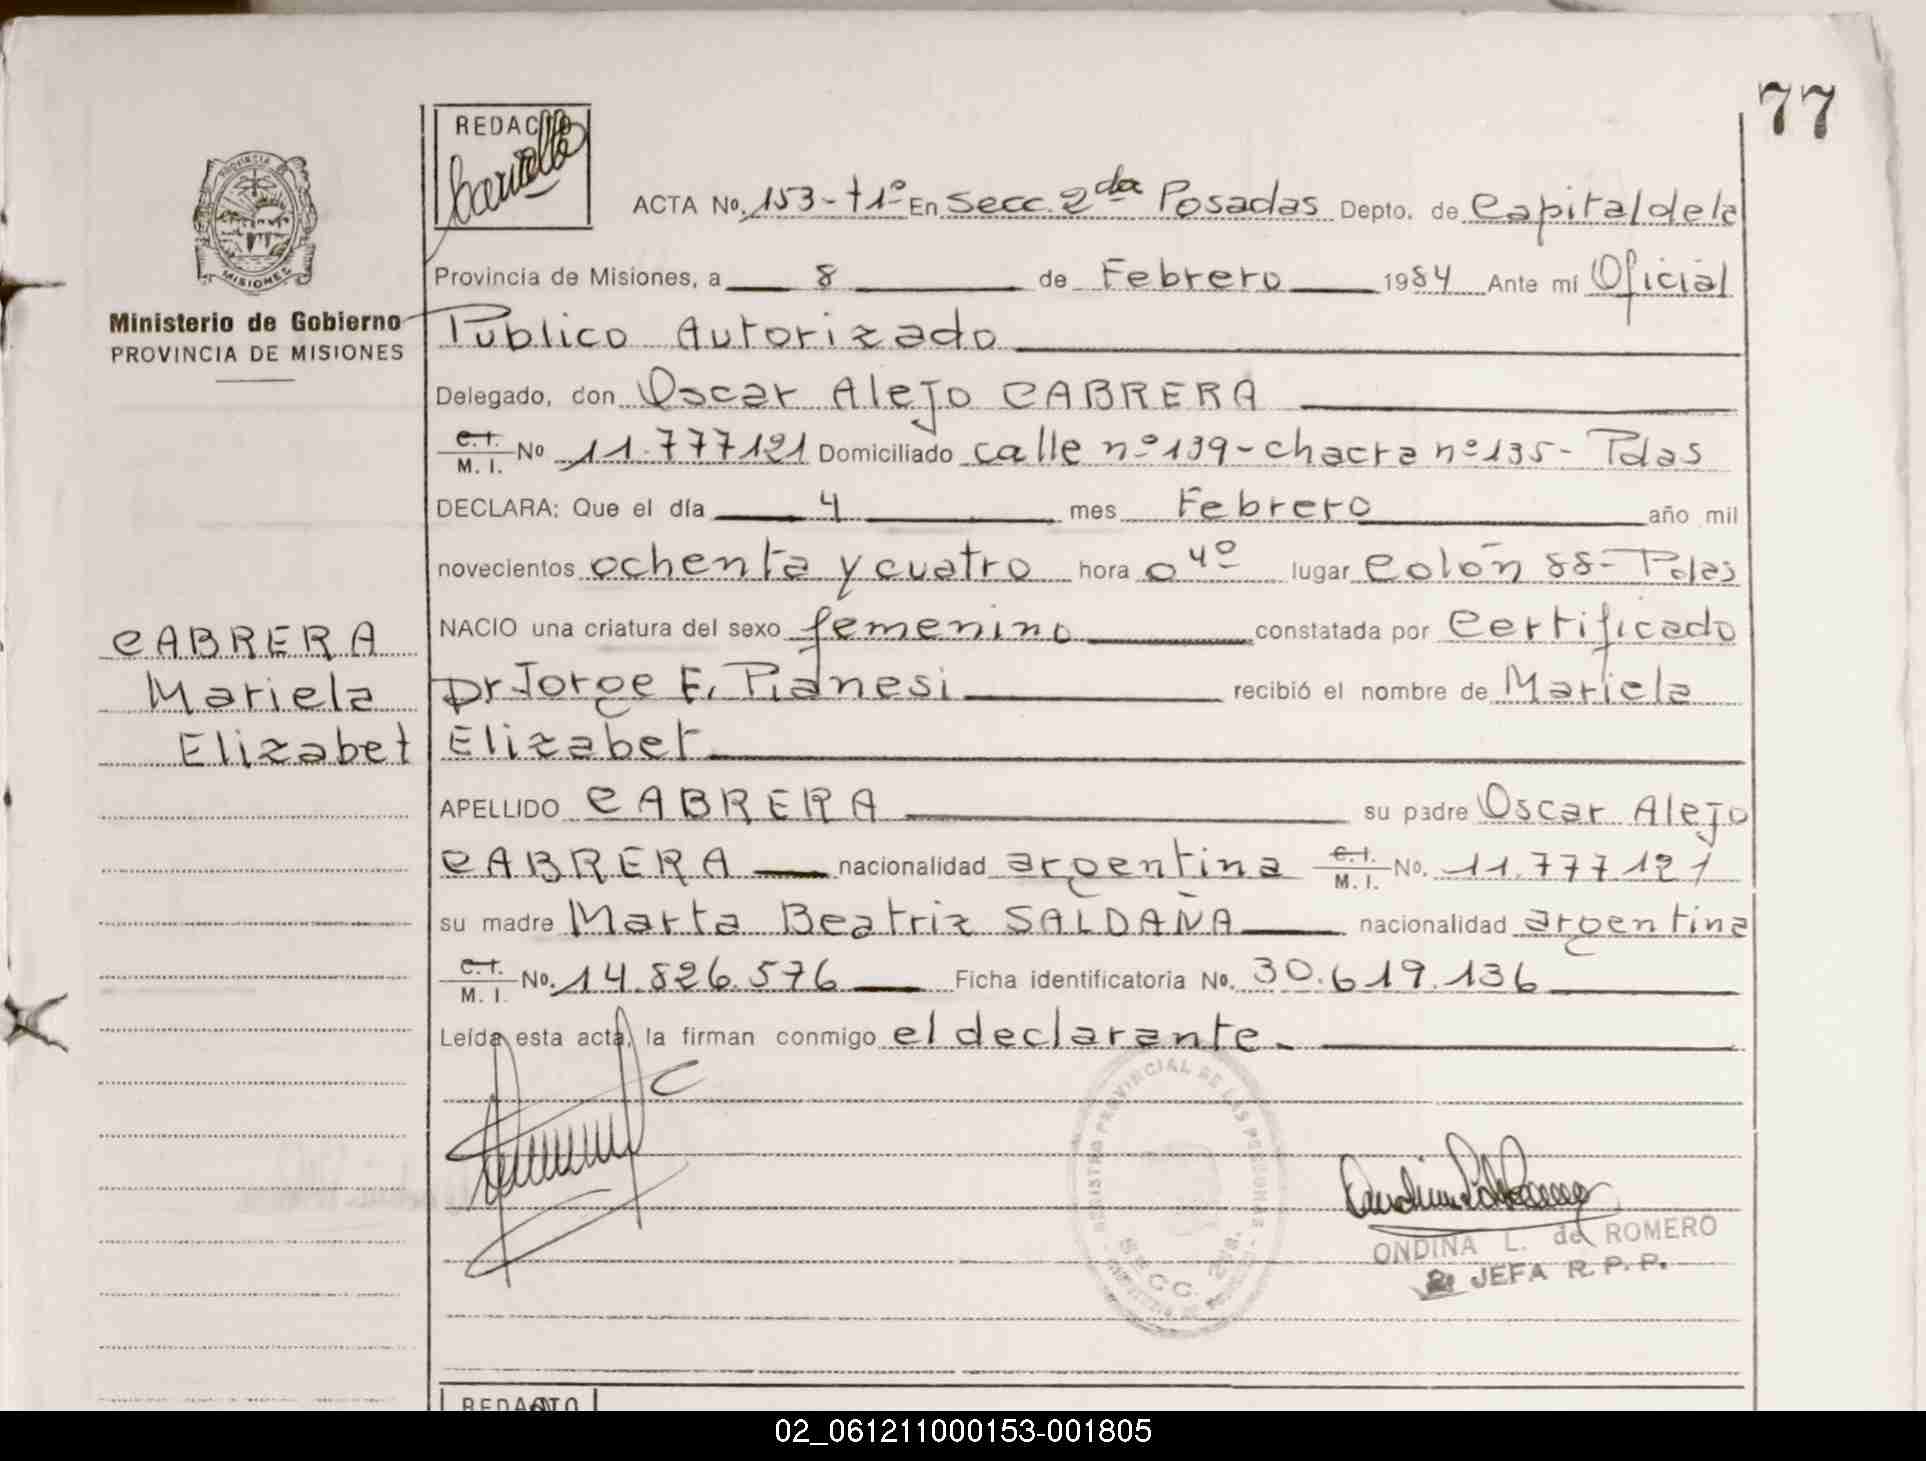 77
REDACTO
ACTA No. 153-t1º En Secc. 2da Posadas Depto. de Capital de la
PROVINCIA MISIONES
Provincia de Misiones, a 8 de Febrero 1984 Ante mí Oficial
Ministerio de Gobierno
PROVINCIA DE MISIONES
Público Autorizado
Delegado, don Oscar Alejo CABRERA
C.I. M. I. No 11.777121 Domiciliado calle nº139-chacra nº135- Pdas
DECLARA: Que el día 4 mes Febrero año mil
novecientos ochenta y cuatro hora 0 4º lugar Colón 88- Pdas
NACIO una criatura del sexo femenino constatada por Certificado
CABRERA
Mariela
Elizabet
Dr Jorge E, Pianesi recibió el nombre de Mariela
Elizabet
APELLIDO CABRERA su padre Oscar Alejo
CABRERA nacionalidad argentina C.I. M. I. No. 11.777.121
su madre Marta Beatriz SALDAÑA nacionalidad argentina
C.I. M. I. No. 14.826.576 Ficha identificatoria No. 30.619.136
Leída esta acta, la firman conmigo el declarante.-
REGISTRO PROVINCIAL DE LAS PERSONAS
SECC. 2da.
ONDINA L. de ROMERO
JEFA R. P. P.
REDACTO
02_061211000153-001805